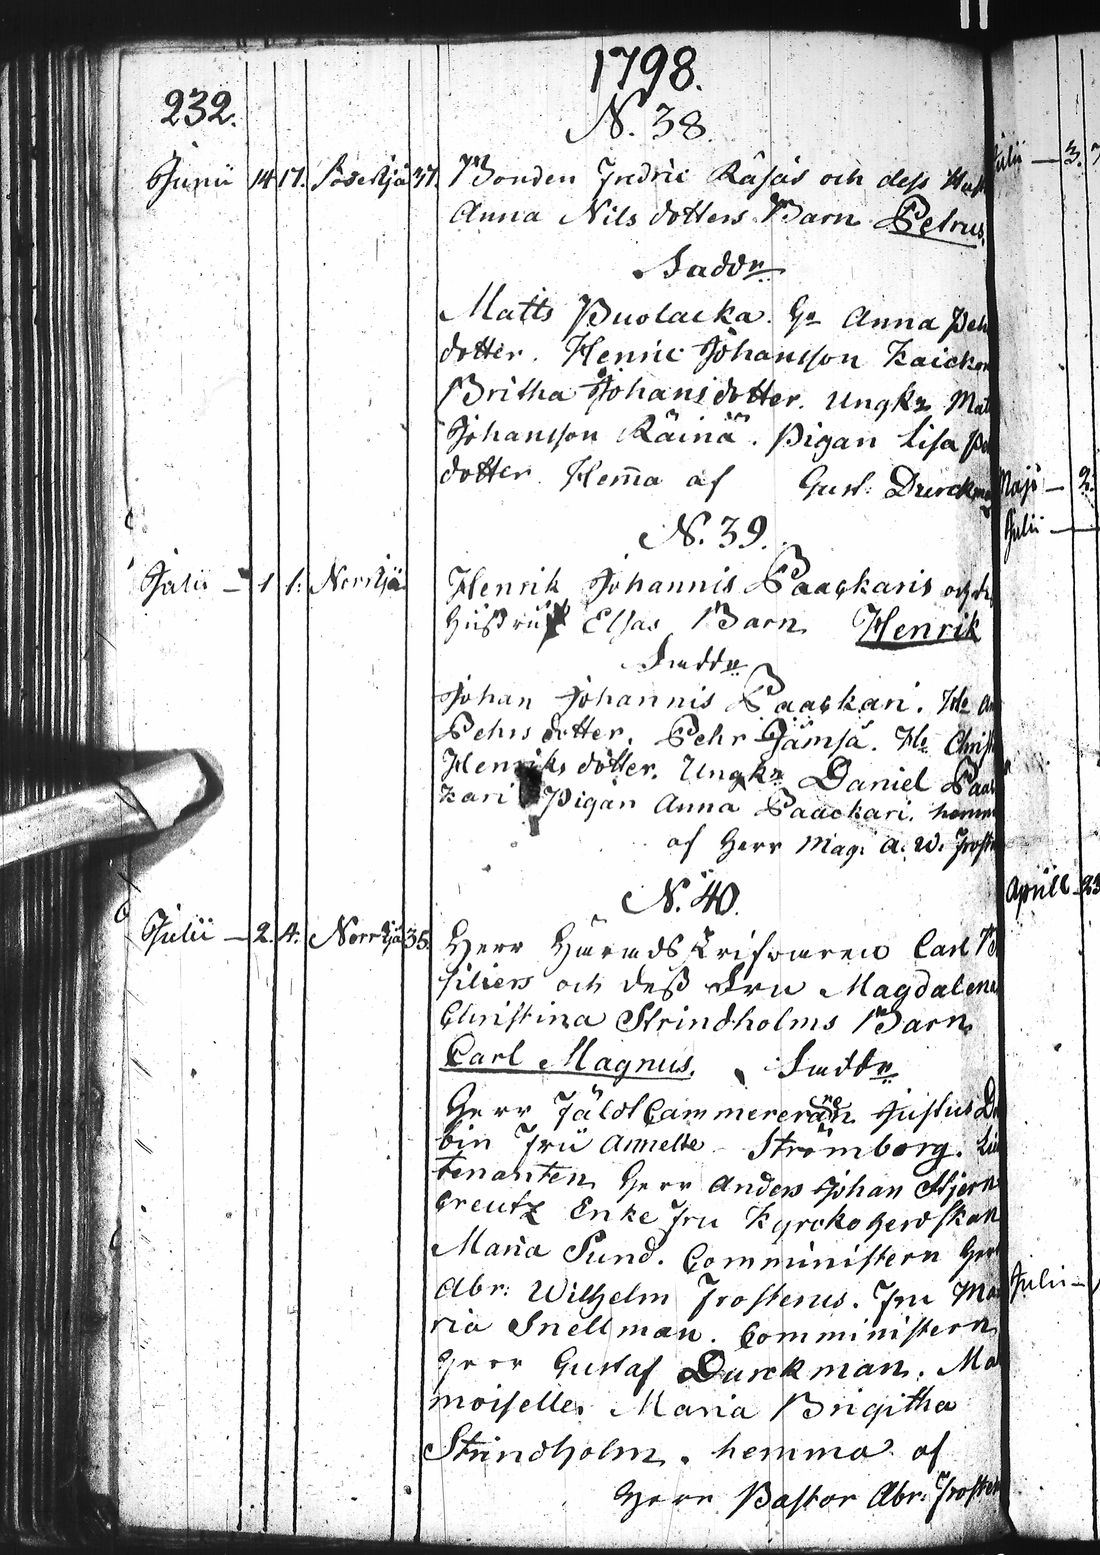 1798.
232.
N. 38.
Junii 14 17. Söderkjä 37. Bonden Fredric Räsäs och dess Hust
Anna Nilsdotters Barn Petrus.
Faddr
Matts Puolacka. Hu Anna Peh
dotter. Henric Johansson Kaicko
Britha Johansdotter. Ungkn Mat
Johansson Räinä. Pigan Lisa Pe
dotter. Hem̄a af Gust: Durckma
N. 39.
Julii – 1 1. Norrkjä Henrik Johannis Paackaris och de
Hustrus Elsas Barn Henrik
Faddr
Johan Johannis Paackari. Hu An
Pehrsdotter. Pehr Jämsä. Hu Christ
Henriksdotter. Ungkn Daniel Paac
kari Pigan Anna Paackari. hemm
af Herr Mag. A. W. Froste
N. 40.
Julii – 2. 4. Norrkjä 35. Herr Carl
och dess Fru Magdalene
Christina Strindholms Barn
Carl Magnus. Faddr
Herr FältCammereraren Justus
bin Fru Annette Strömborg. Lieu
tenanten Herr Anders Johan Stjern
creutz Enke Fru Kyrckoherdskan
Maria Sund. Comministern Herr
Abr: Wilhelm Frosterus. Fru Ma
ria Snellman. Comministern
Herr Gustaf Durckman. Ma
moiselle Maria Brigitha
Strindholm. hemma af
Herr Pastor Abr: Froster
Julii – 3. 7
Maji – 2.
Julii –
Aprill 23
Julii –